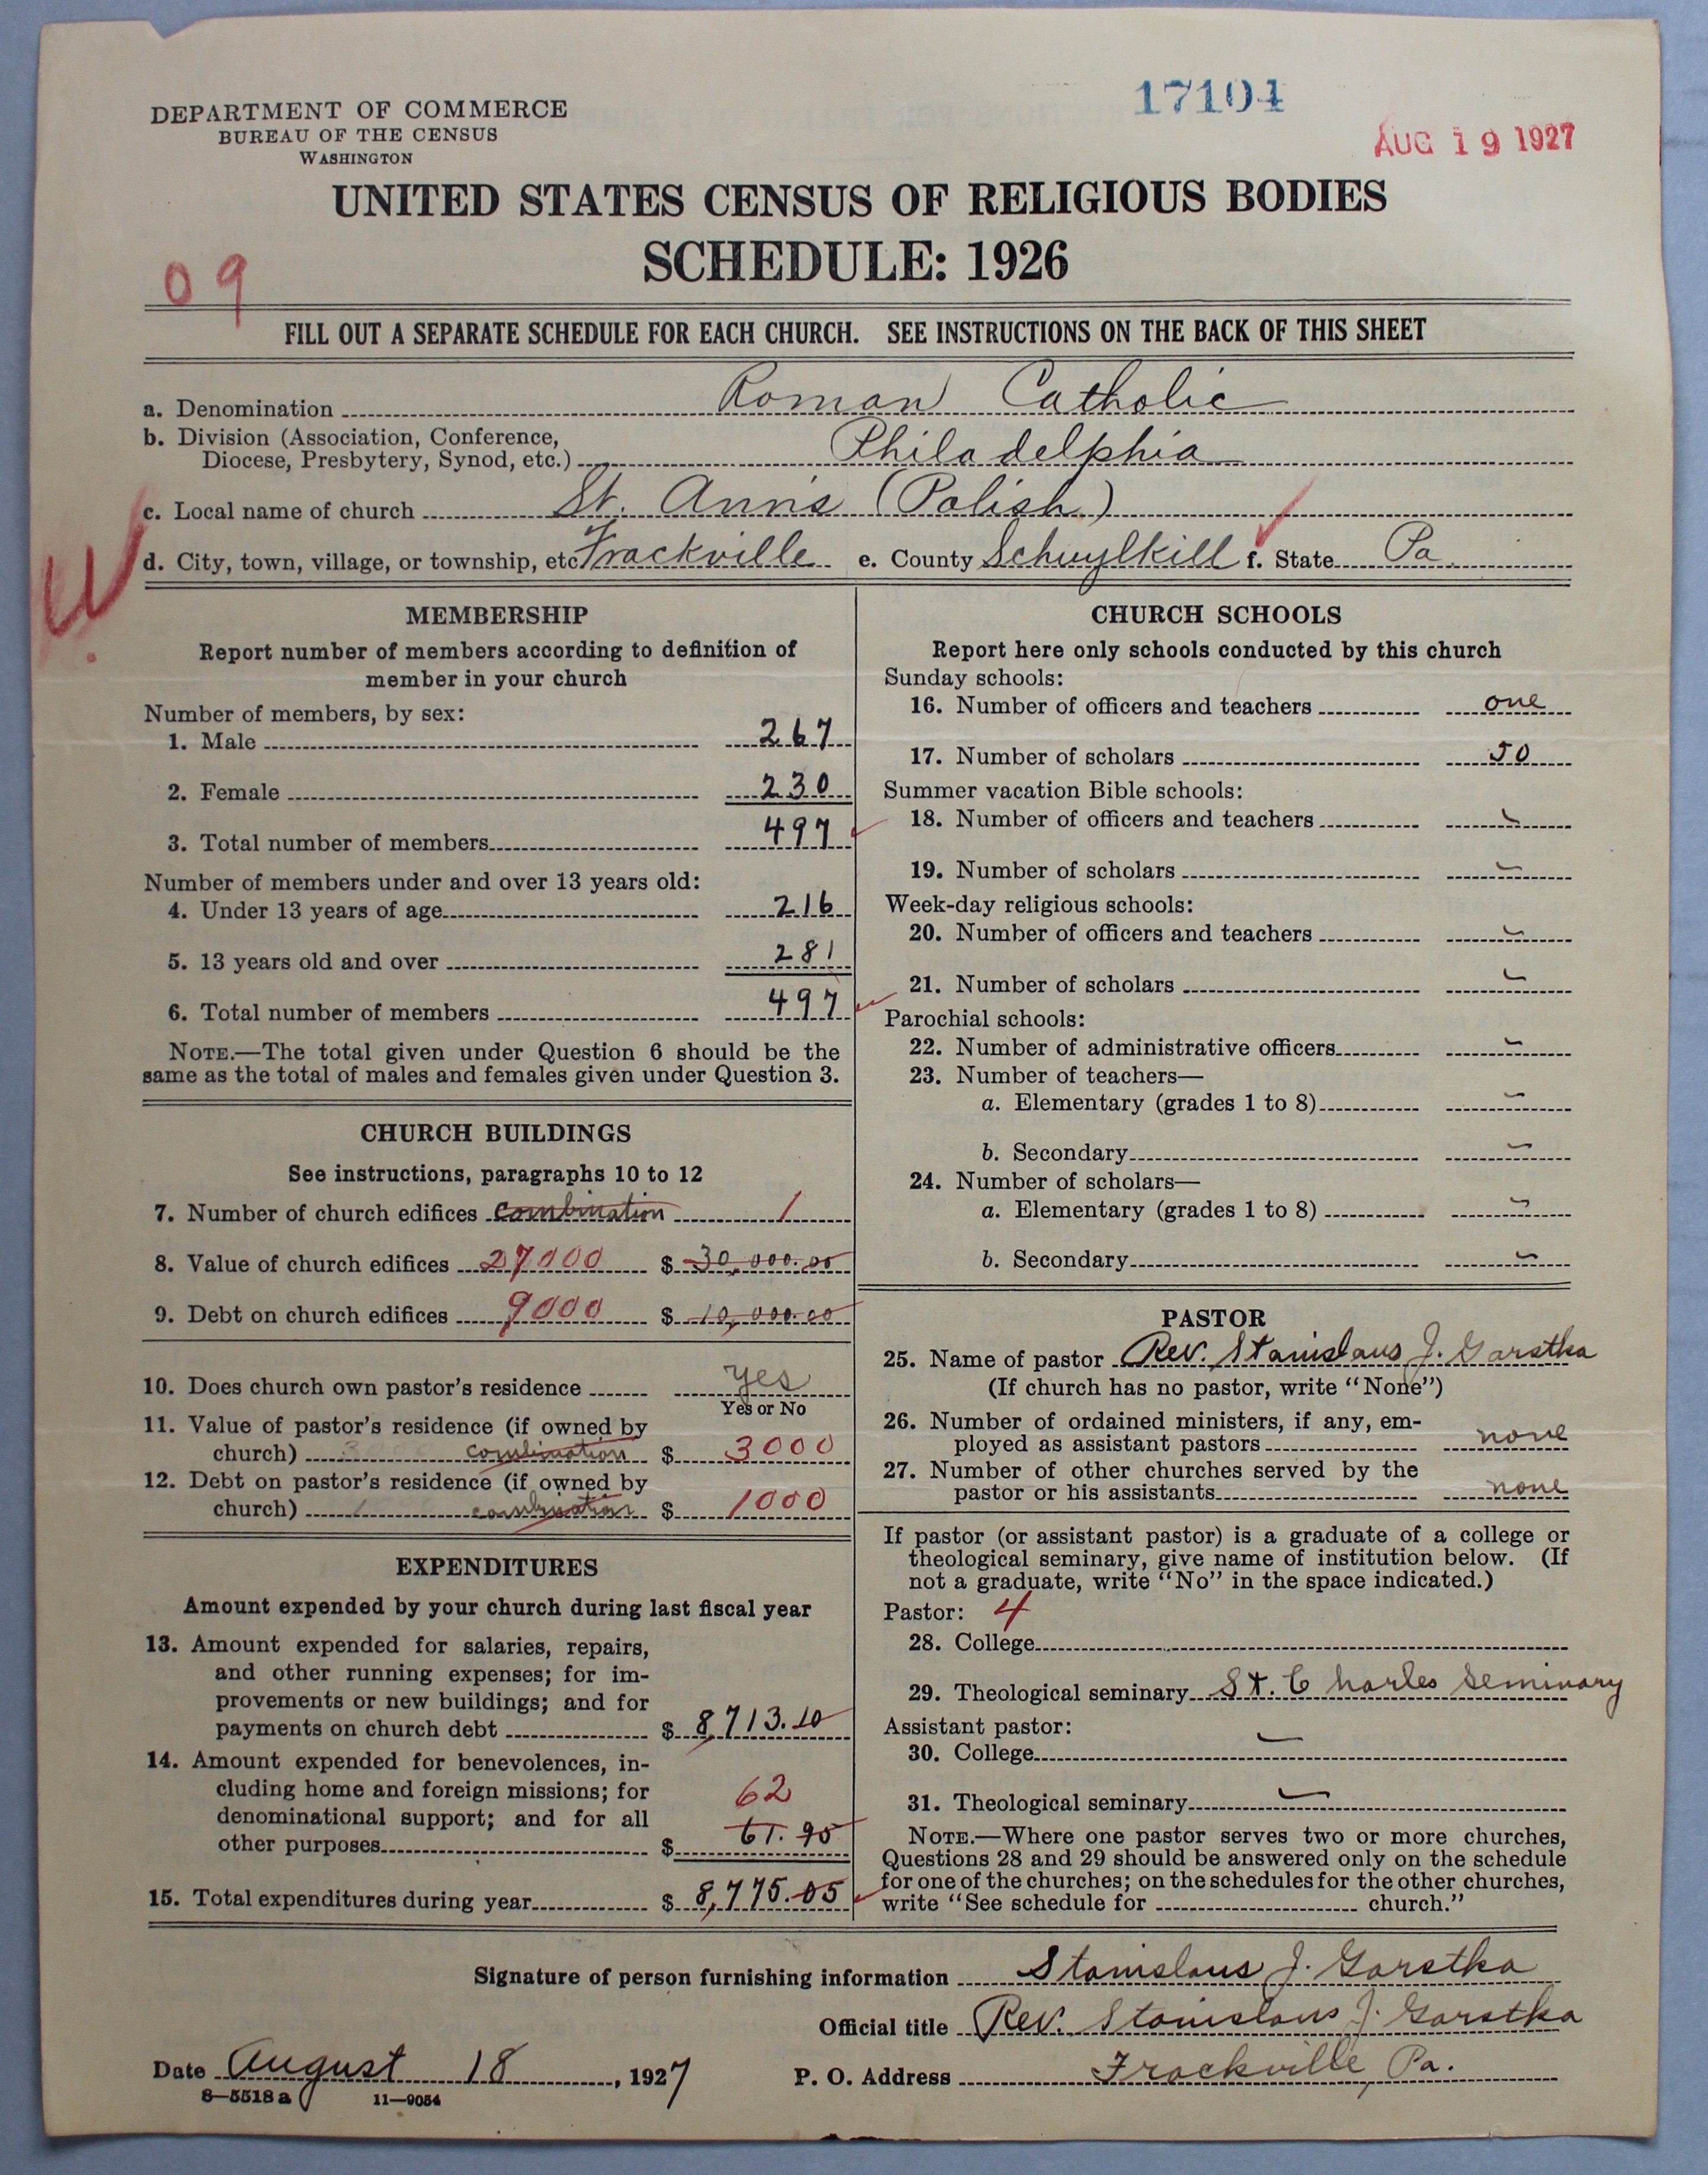 17104
AUG 19 1927
DEPARTMENT OF COMMERCE
BUREAU OF THE CENSUS
WASHINGTON
UNITED STATES CENSUS OF RELIGIOUS BODIES
SCHEDULE: 1926
09
FILL OUT A SEPARATE SCHEDULE FOR EACH CHURCH. SEE INSTRUCTIONS ON THE BACK OF THIS SHEET
a. Denomination Roman Catholic
b. Division (Association, Conference,
Diocese, Presbytery, Synod, etc.) Philadelphia
c. Local name of church St. Ann's (Polish)
d. City, town, village, or township, etc. Frackville e. County Schuylkill f. State Pa.
W
MEMBERSHIP
Report number of members according to definition of
member in your church
Number of members, by sex:
1. Male 267
2. Female 230
3. Total number of members 497
Number of members under and over 13 years old:
4. Under 13 years of age 216
5. 13 years old and over 281
6. Total number of members 497
NOTE.—The total given under Question 6 should be the
same as the total of males and females given under Question 3.
CHURCH BUILDINGS
See instructions, paragraphs 10 to 12
7. Number of church edifices combination 1
8. Value of church edifices 27000 $ 30,000.00
9. Debt on church edifices 9000 $ 10,000.00
10. Does church own pastor's residence yes
Yes or No
11. Value of pastor's residence (if owned by
church) combination $ 3000
12. Debt on pastor's residence (if owned by
church) combination $ 1000
EXPENDITURES
Amount expended by your church during last fiscal year
13. Amount expended for salaries, repairs,
and other running expenses; for im-
provements or new buildings; and for
payments on church debt $ 8,713.10
14. Amount expended for benevolences, in-
cluding home and foreign missions; for
denominational support; and for all
62
other purposes $ 61.95
15. Total expenditures during year $ 8,775.05
CHURCH SCHOOLS
Report here only schools conducted by this church
Sunday schools:
16. Number of officers and teachers one
17. Number of scholars 50
Summer vacation Bible schools:
18. Number of officers and teachers -
19. Number of scholars -
Week-day religious schools:
20. Number of officers and teachers -
21. Number of scholars -
Parochial schools:
22. Number of administrative officers -
23. Number of teachers—
a. Elementary (grades 1 to 8) -
b. Secondary -
24. Number of scholars—
a. Elementary (grades 1 to 8) -
b. Secondary -
PASTOR
25. Name of pastor Rev. Stanislaus J. Garstka
(If church has no pastor, write "None")
26. Number of ordained ministers, if any, em-
ployed as assistant pastors none
27. Number of other churches served by the
pastor or his assistants none
If pastor (or assistant pastor) is a graduate of a college or
theological seminary, give name of institution below. (If
not a graduate, write "No" in the space indicated.)
Pastor: 4
28. College
29. Theological seminary St. Charles Seminary
Assistant pastor:
30. College -
31. Theological seminary -
NOTE.—Where one pastor serves two or more churches,
Questions 28 and 29 should be answered only on the schedule
for one of the churches; on the schedules for the other churches,
write "See schedule for church."
Signature of person furnishing information Stanislaus J. Garstka
Official title Rev. Stanislaus J. Garstka
Date August 18, 1927 P. O. Address Frackville, Pa.
8—5518 a 11—9054